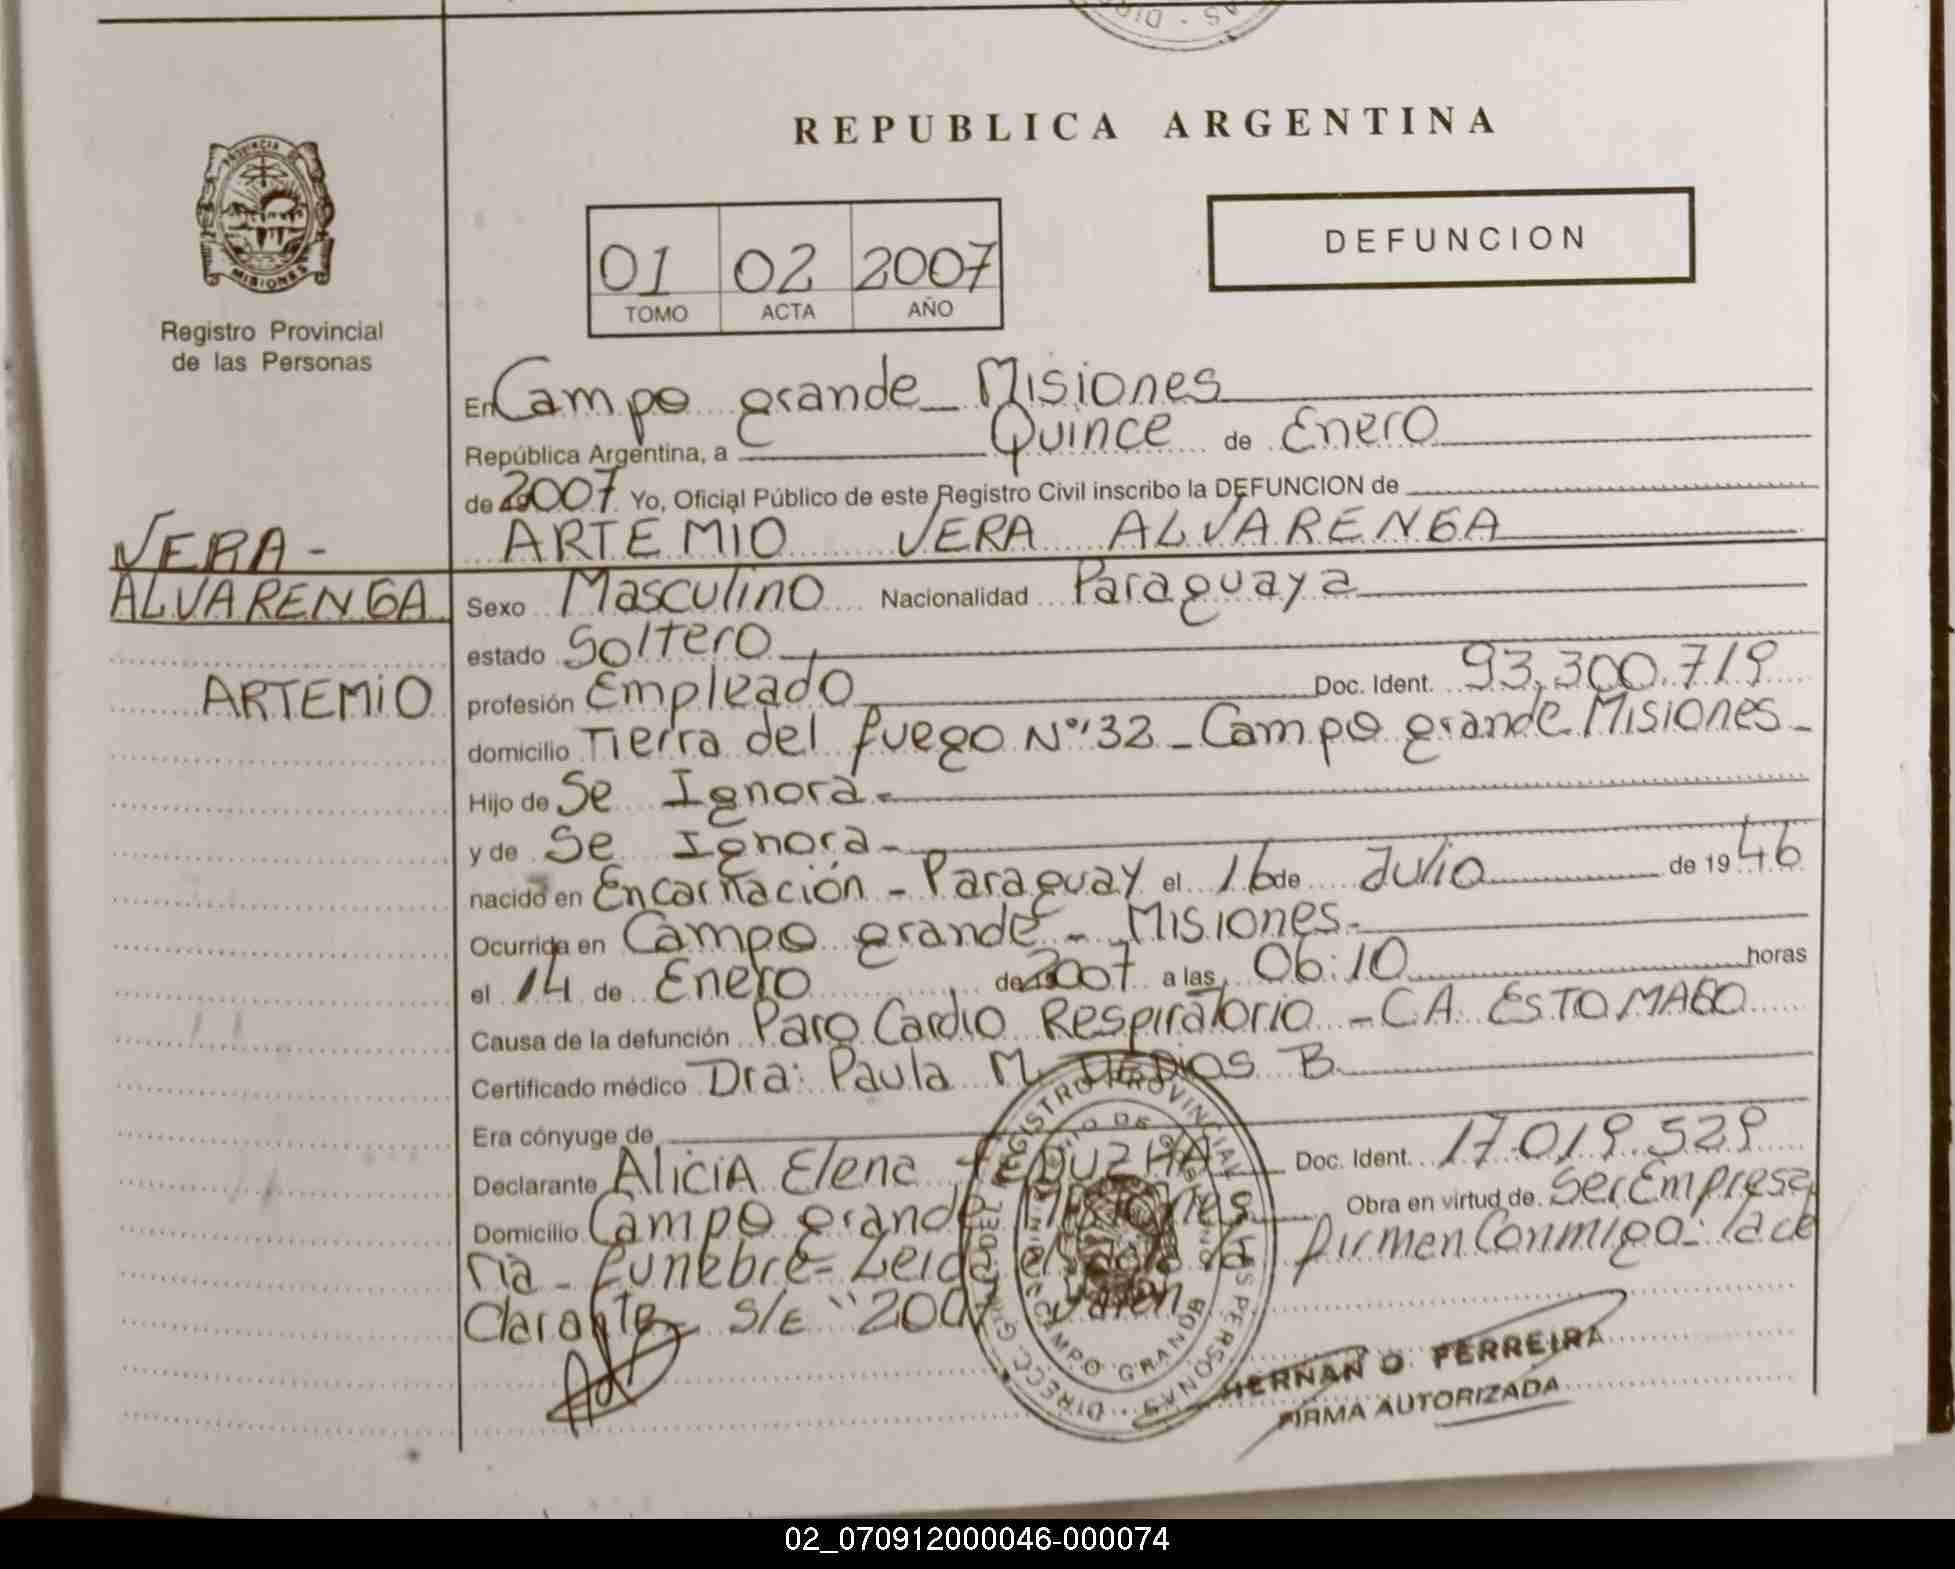 REPUBLICA ARGENTINA
PROVINCIA DE
MISIONES
Registro Provincial
de las Personas
01 02 2007
TOMO ACTA AÑO
DEFUNCION
En Campo grande - Misiones
República Argentina, a Quince de Enero
de 2007 Yo, Oficial Público de este Registro Civil inscribo la DEFUNCION de
ARTEMIO VERA ALVARENGA
VERA -
ALVARENGA
ARTEMIO
Sexo Masculino Nacionalidad Paraguaya
estado Soltero
profesión Empleado Doc. Ident. 93.300.719
domicilio Tierra del fuego N° 132 - Campo grande Misiones -
Hijo de Se Ignora -
y de Se Ignora -
nacido en Encarnación - Paraguay el 16 de Julio de 1946
Ocurrida en Campo grande - Misiones -
el 14 de Enero de 2007 a las 06:10 horas
Causa de la defunción Paro Cardio Respiratorio - CA. ESTOMAGO
Certificado médico Dra: Paula M. DEDIOS B.
Era cónyuge de
Declarante Alicia Elena Doc. Ident. 17.019.529
Domicilio Campo grande Misiones Obra en virtud de Ser Empresa
ria - funebre - Leida el acta la firmen Conmigo - la de
Clarante - S/E "2007 Valen
REGISTRO PROVINCIAL DE LAS PERSONAS
CAMPO GRANDE
HERNAN O. FERREIRA
FIRMA AUTORIZADA
02_070912000046-000074